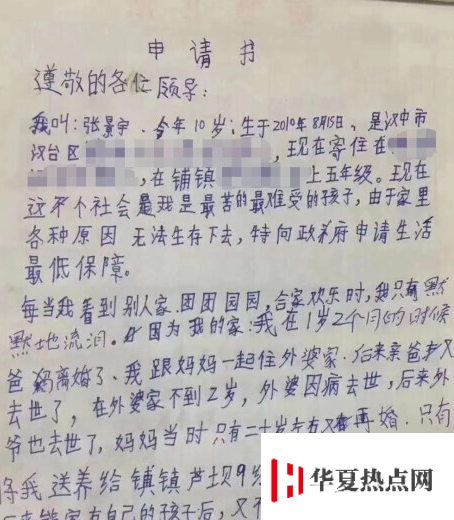 申请书
遵敬的各位领导:
我叫:张景宇.今年10岁;生于2010年8月15日、是汉中市
汉台区,现在寄住在
,在铺镇上五年级。现在
这个社会是我是最苦的最难受的孩子,由于家里
各种原因 无法生存下去,特向政府申请生活
最低保障。
每当我看到别人家.团团园园,合家欢乐时,我只有默
默地流泪。因为我的家:我在1岁2个月的时候
爸妈离婚了、我跟妈妈一起住外婆家.后来亲爸爸又
去世了,在外婆家不到2岁,外婆因病去世,后来外
爷也去世了,妈妈当时只有二十岁左右又再婚.只有
将我送养给铺镇芦坝9组
家有自己的孩子后,又
华夏热点网